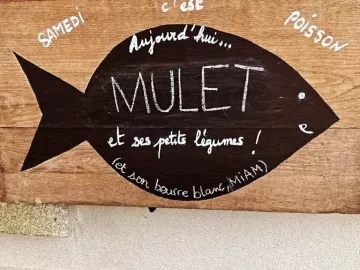 SAMEDI c'est POISSON
Aujourd'hui...
MULET
et ses petits légumes !
(et son beurre blanc, MIAM)